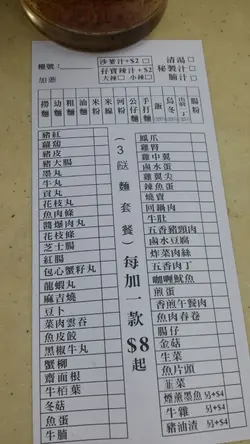 檯號：
沙爹汁+$2
清湯
加蔥
仔寶辣汁+$2
秘製汁
大辣
小辣
腩汁
撈麵
幼麵
粗麵
油麵
米粉
米線
河粉
公仔麵
手打麵
飯
烏冬
腸粉
(3餸麵套餐)每加一款$8起
豬紅
蘿蔔
豬皮
豬大腸
墨丸
牛丸
貢丸
花枝丸
魚肉條
醬爆肉丸
花枝丸
芝士腸
紅腸
包心蟹籽丸
龍蝦丸
麻吉燒
豆卜
菜肉雲吞
魚皮餃
黑椒牛丸
蟹柳
齋面根
牛栢葉
冬菇
魚蛋
牛腩
鳳爪
雞腎
雞中翼
鹵水蛋
雞翼尖
辣魚蛋
燒賣
回鍋肉
牛肚
五香豬頸肉
鹵水豆腐
炸菜肉絲
五香肉丁
咖喱魷魚
煎蛋
香煎午餐肉
魚肉春卷
腸仔
金菇
生菜
魚片頭
韮菜
煙薰墨魚 另+$4
牛雜 另+$4
豬油渣 另+$4